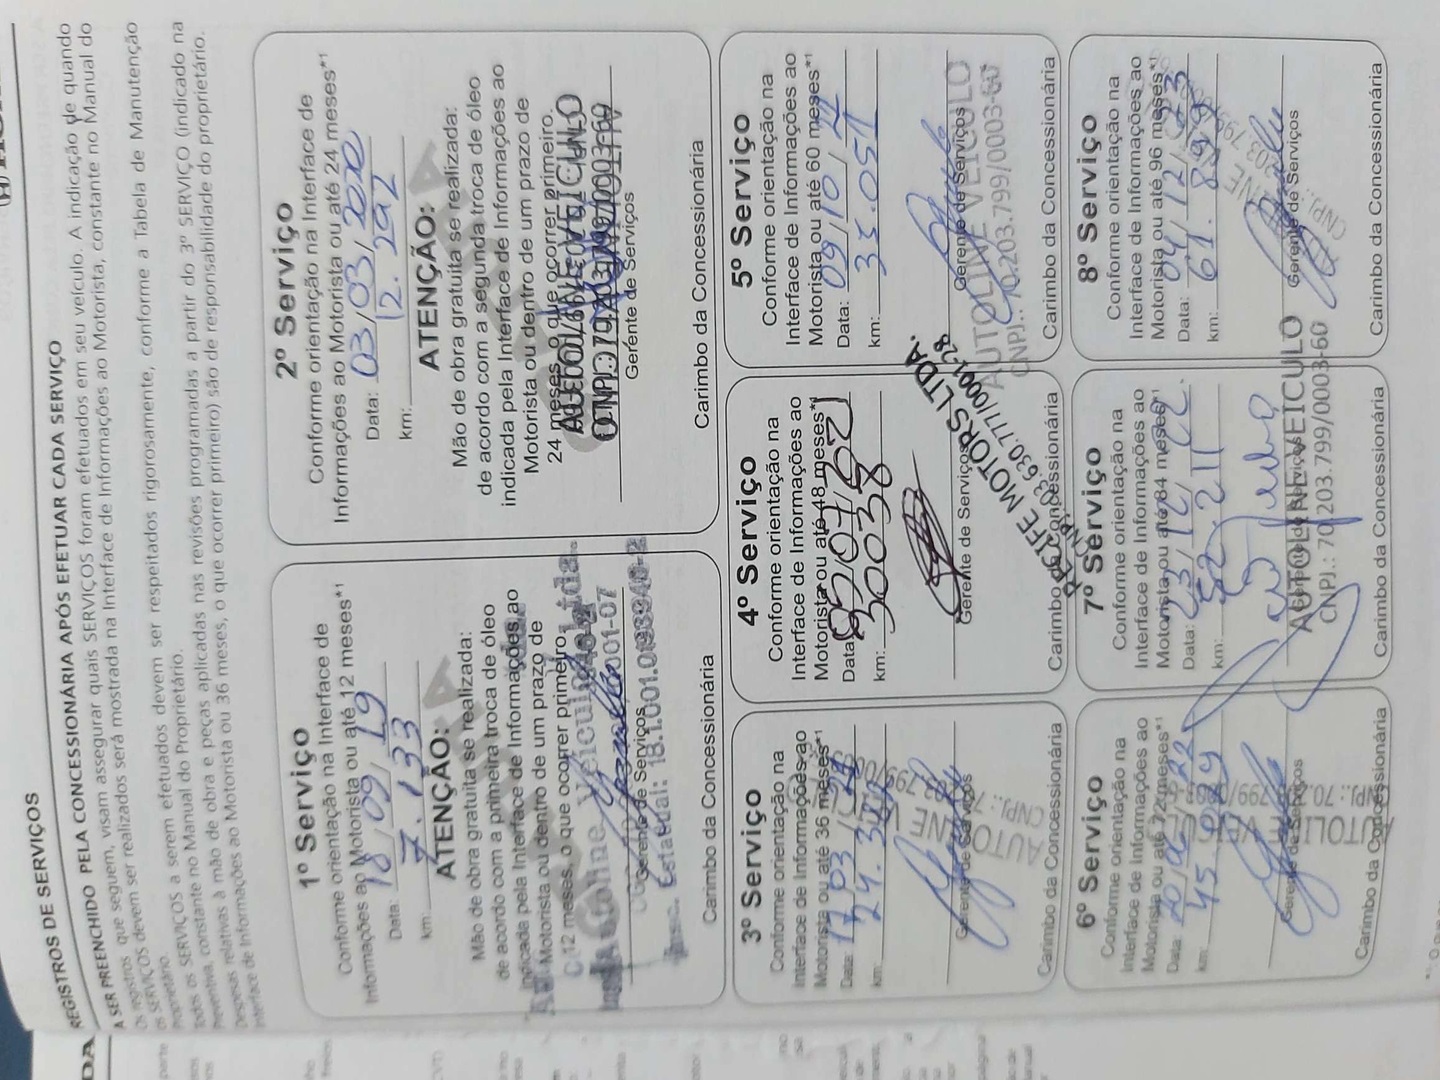 REGISTROS DE SERVIÇOS
A SER PREENCHIDO PELA CONCESSIONÁRIA APÓS EFETUAR CADA SERVIÇO
Os registros que seguem, visam assegurar quais SERVIÇOS foram efetuados em seu veículo. A indicação de quando
os SERVIÇOS devem ser realizados será mostrada na Interface de Informações ao Motorista, constante no Manual do
Proprietário.
Todos os SERVIÇOS a serem efetuados devem ser respeitados rigorosamente, conforme a Tabela de Manutenção
Preventiva, constante no Manual do Proprietário.
Despesas relativas à mão de obra e peças aplicadas nas revisões programadas a partir do 3º SERVIÇO (indicado na
Interface de Informações ao Motorista ou 36 meses, o que ocorrer primeiro) são de responsabilidade do proprietário.
1º Serviço
Conforme orientação na Interface de
Informações ao Motorista ou até 12 meses*¹
Data: 18/09/19
km: 7.133
ATENÇÃO:
Mão de obra gratuita se realizada:
de acordo com a primeira troca de óleo
indicada pela Interface de Informações ao
Motorista ou dentro de um prazo de
12 meses, o que ocorrer primeiro.
Gerente de Serviços
Estadual: 18.1.001.0193940-2
Carimbo da Concessionária
2º Serviço
Conforme orientação na Interface de
Informações ao Motorista ou até 24 meses*¹
Data: 03/03/2020
km: 12.292
ATENÇÃO:
Mão de obra gratuita se realizada:
de acordo com a segunda troca de óleo
indicada pela Interface de Informações ao
Motorista ou dentro de um prazo de
24 meses, o que ocorrer primeiro.
Gerente de Serviços
Carimbo da Concessionária
3º Serviço
Conforme orientação na
Interface de Informações ao
Motorista ou até 36 meses*¹
Data: 17/03
km: 24.
Gerente de Serviços
AUTOLINE VEICULO
Carimbo da Concessionária
4º Serviço
Conforme orientação na
Interface de Informações ao
Motorista ou até 48 meses*¹
Data:
km: 30038
Gerente de Serviços
RECIFE MOTORS LTDA.
CNPJ: 03.630.777/0001-28
Carimbo da Concessionária
5º Serviço
Conforme orientação na
Interface de Informações ao
Motorista ou até 60 meses*¹
Data: 09/10/21
km: 35.051
Gerente de Serviços
AUTOLINE VEICULO
CNPJ.: 70.203.799/0003-60
Carimbo da Concessionária
6º Serviço
Conforme orientação na
Interface de Informações ao
Motorista ou até 72 meses*¹
Data: 22
km: 45.
Gerente de Serviços
AUTOLINE VEICULO
Carimbo da Concessionária
7º Serviço
Conforme orientação na
Interface de Informações ao
Motorista ou até 84 meses*¹
Data: 23/12/22
km: 52.211
AUTOLINE VEICULO
CNPJ.: 70.203.799/0003-60
Carimbo da Concessionária
8º Serviço
Conforme orientação na
Interface de Informações ao
Motorista ou até 96 meses*¹
Data: 04/12/23
km: 61.899
Gerente de Serviços
Carimbo da Concessionária